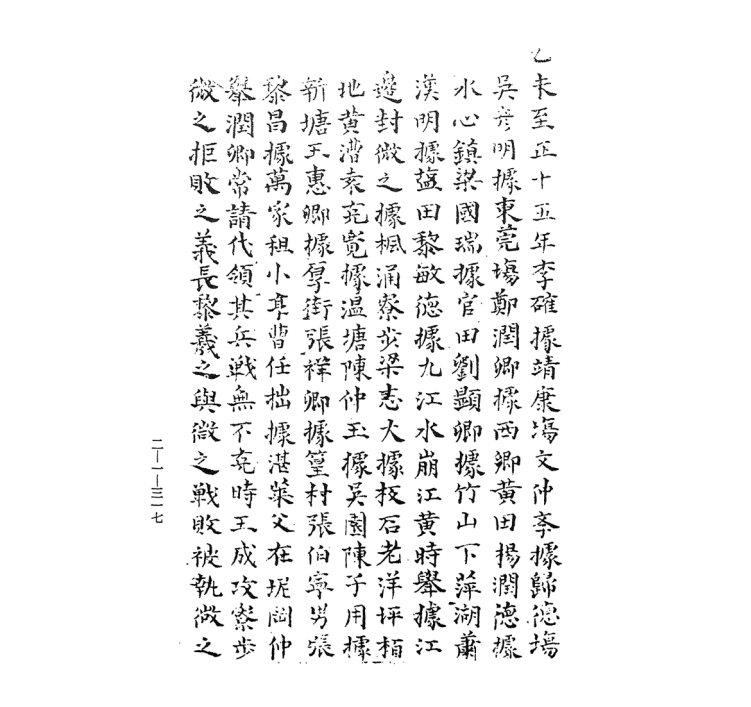 乙未至正十五年李確據靖康塲文仲亭據歸德塲
吳彥明據東莞塲鄭潤卿據西卿黃田揚潤德據
水心鎮梁國瑞據官田劉顯卿據竹山下萍湖蕭
漢明據鹽田黎敏德據九江水崩江黃時舉據江
邊封微之據楓涌寮步梁志大據板石老洋坪栢
地黃漕袁克寬據温塘陳仲玉據吳園陳子用據
新塘王惠卿據厚街張祥卿據篁村張伯寧男張
黎昌據萬家租小亨曹任拙據湛菜父在坭岡仲
舉潤卿常請代領其兵戰無不克時王成攻寮步
微之拒敗之義長黎義之與微之戰敗被執微之
二—一—三一七